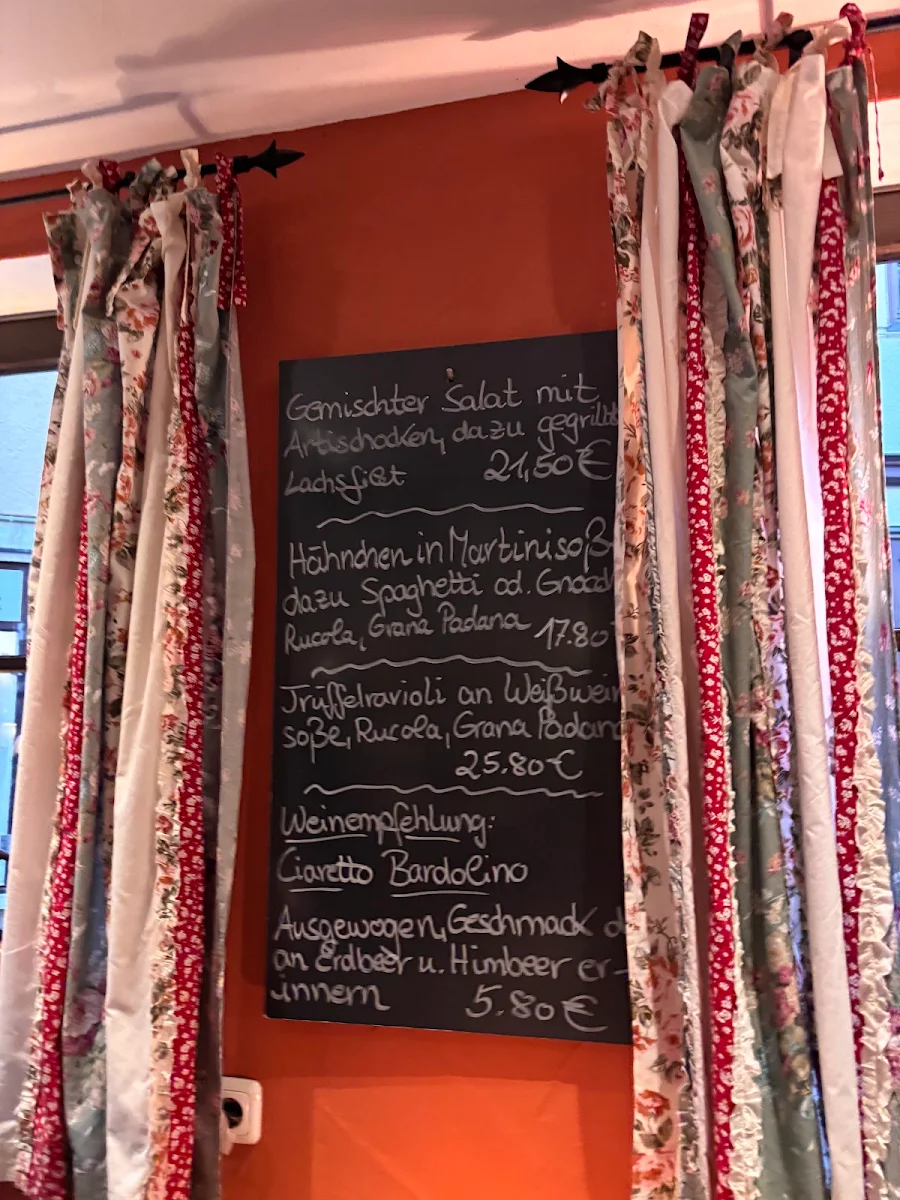 Gemischter Salat mit
Artischocken, dazu gegrillt
Lachsfilet 21,50€
Hähnchen in Martinisoße
dazu Spaghetti od.
Rucola, Grana Padana 17.80
Trüffelravioli an Weißwein
soße, Rucola, Grana Padano
25.80€
Weinempfehlung:
Ciaretto Bardolino
Ausgewogen, Geschmack
an Erdbeer u. Himbeer er-
innern 5.80€